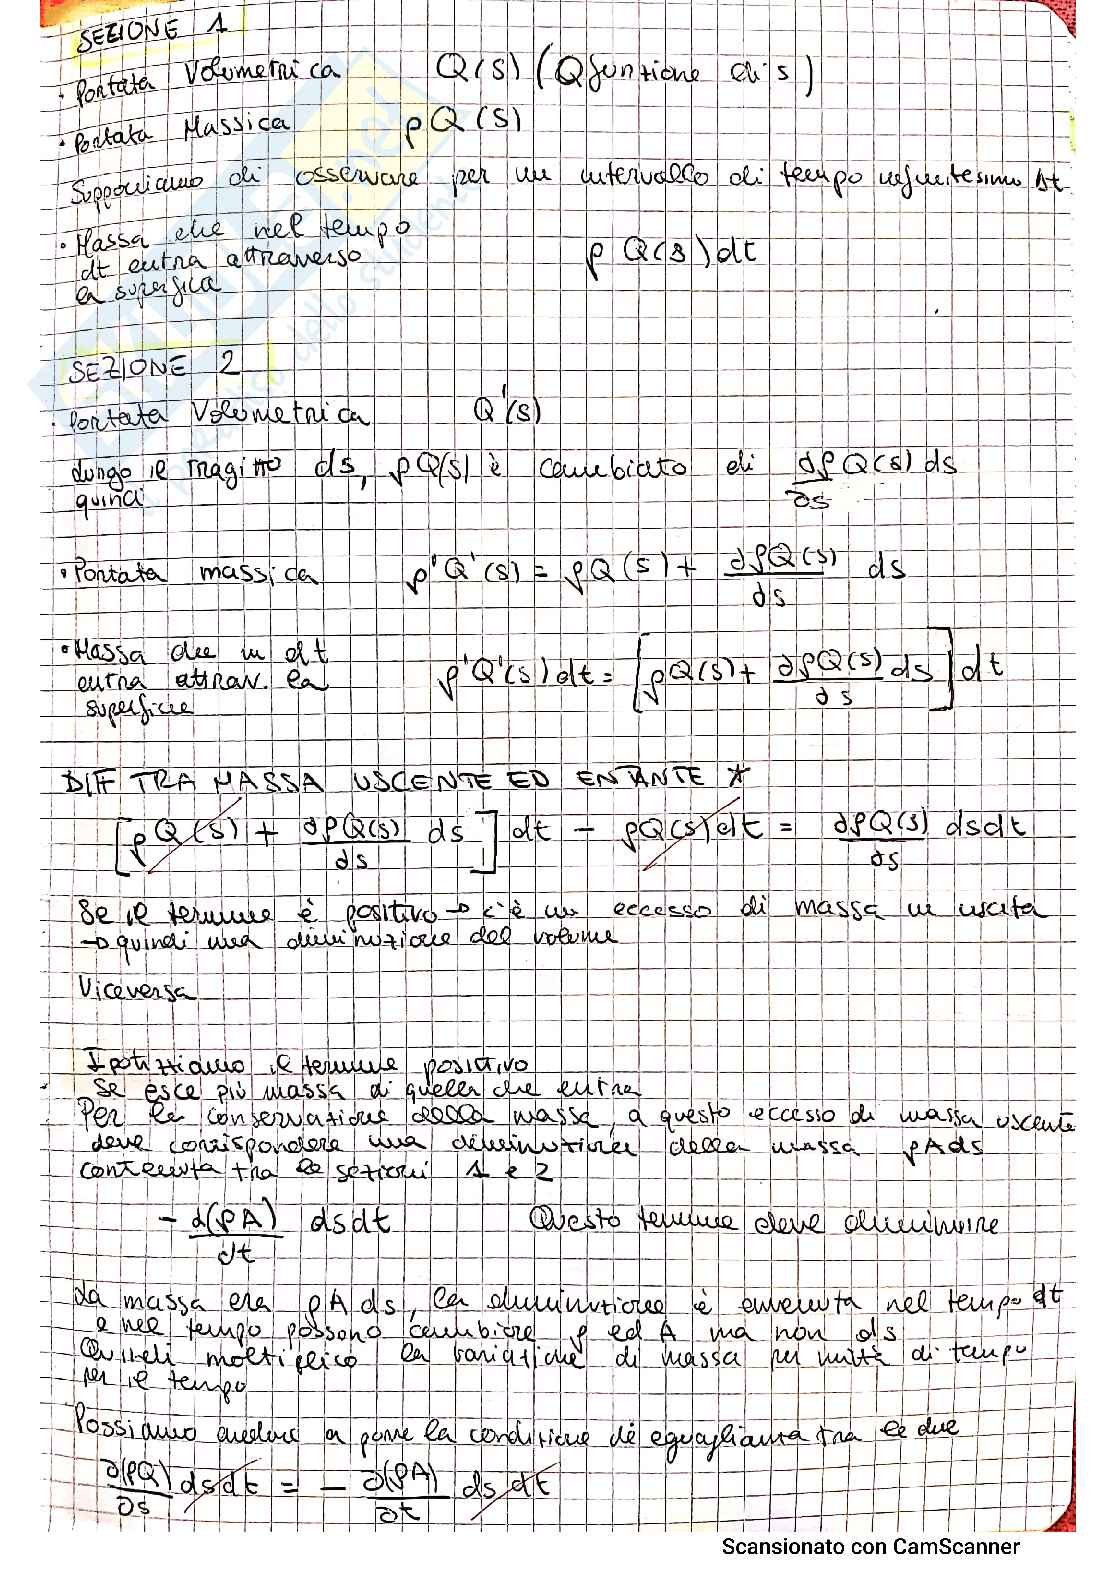 SEZIONE 1
• Portata Volumetrica Q(s) (Q funzione di s)
• Portata Massica ρQ(s)
Supponiamo di osservare per un intervallo di tempo infinitesimo Δt
• Massa che nel tempo
dt entra attraverso ρ Q(s)dt
la superfica
SEZIONE 2
• Portata Volumetrica Q'(s)
Lungo il tragitto ds, ρQ(s) è cambiato di ∂ρQ(s)/∂s ds
quindi
• Portata massica ρ'Q'(s) = ρQ(s) + ∂ρQ(s)/∂s ds
• Massa che in dt
entra attrav. la ρ'Q'(s)dt = [ρQ(s) + ∂ρQ(s)/∂s ds] dt
superficie
DIF TRA MASSA USCENTE ED ENTANTE *
[ρQ(s) + ∂ρQ(s)/∂s ds] dt - ρQ(s)dt = ∂ρQ(s)/∂s dsdt
Se il termine è positivo → c'è un eccesso di massa in uscita
→ quindi una diminuzione del volume
Viceversa
Ipotizziamo il termine positivo
Se esce più massa di quella che entra
Per la conservazione della massa, a questo eccesso di massa uscente
deve corrispondere una diminuzione della massa ρAds
contenuta tra le sezioni 1 e 2
- ∂(ρA)/∂t dsdt Questo termine deve diminuire
La massa era ρA ds, la diminuzione è avvenuta nel tempo dt
e nel tempo possono cambiare ρ ed A ma non ds
Quindi moltiplico la variazione di massa per unità di tempo
per il tempo
Possiamo andare a porre la condizione di eguaglianza tra le due
∂(ρQ)/∂s dsdt = - ∂(ρA)/∂t ds dt
Scansionato con CamScanner